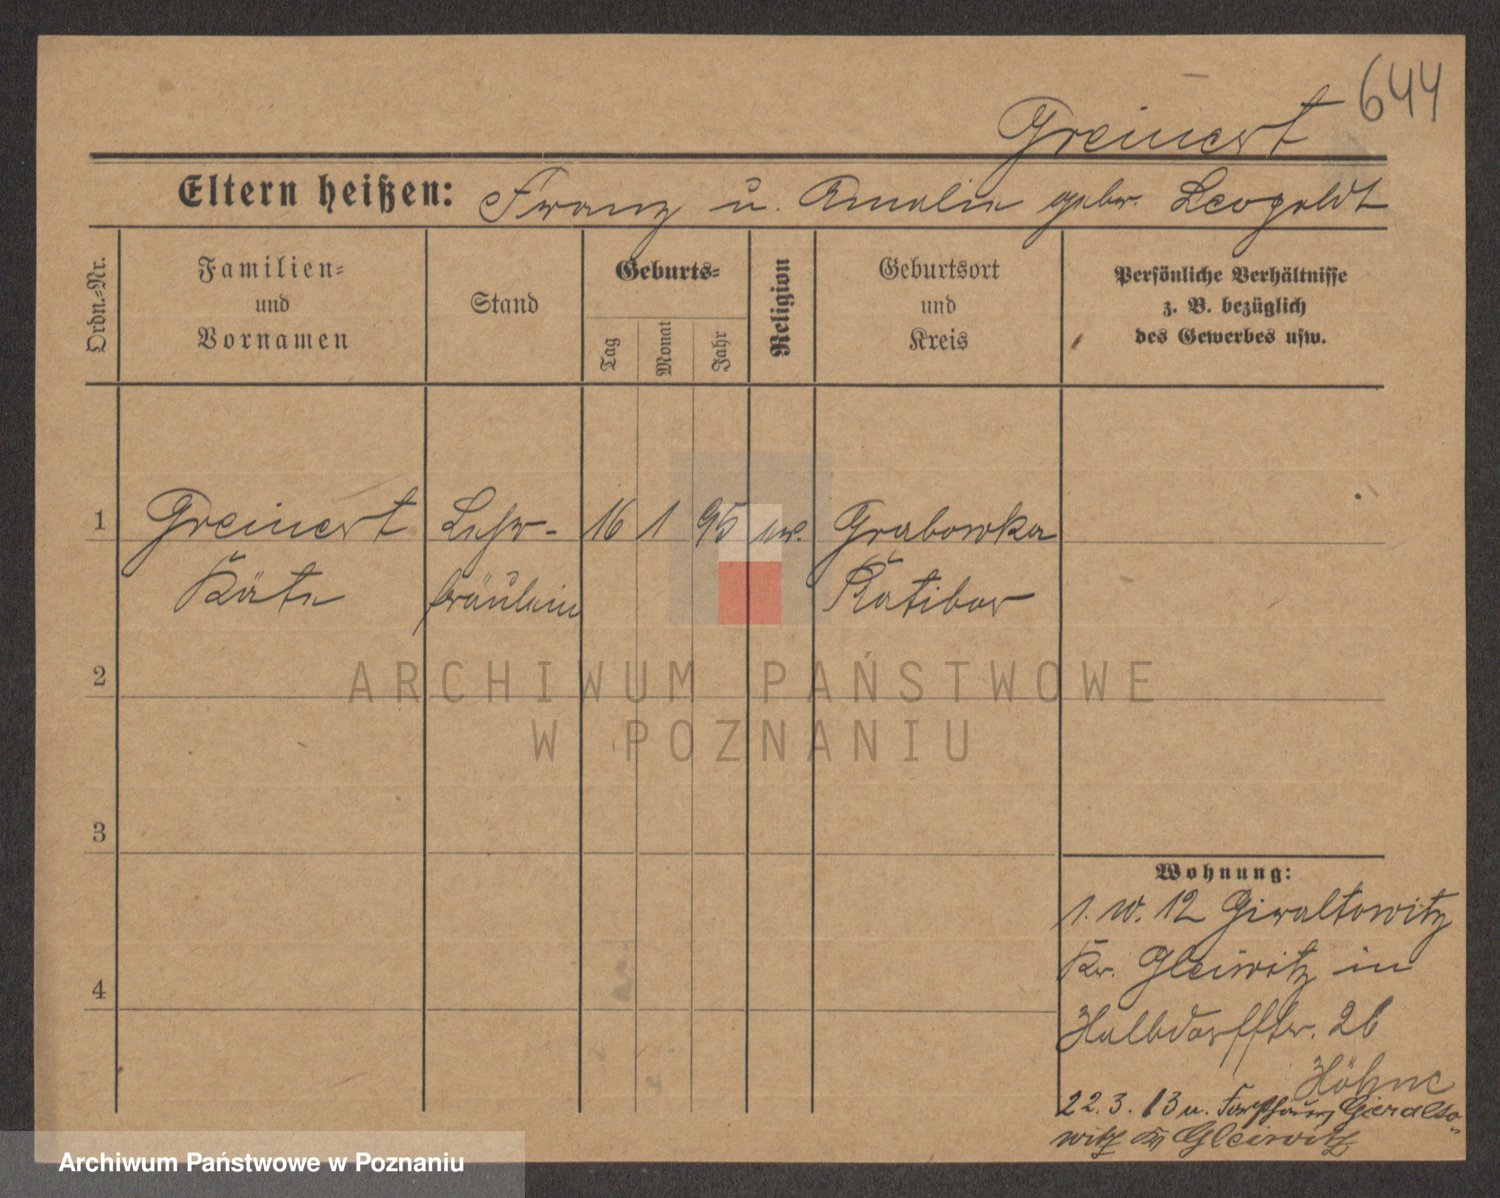 644
Greinert
Eltern heißen: Franz u. Amalie gebr. Leopoldt
Ordn.-Nr.
Familien-
und
Vornamen
Stand
Geburts-
Tag
Monat
Jahr
Religion
Geburtsort
und
Kreis
Persönliche Verhältnisse
z. B. bezüglich
des Gewerbes usw.
1 Greinert Lehr- 16 1 95 ev. Grabowka
Käte fräulein Ratibor
2
3
4
Wohnung:
1. 10. 12 Giraltowitz
Kr. Gleiwitz in
Halbdorfstr. 26
Höhne
22. 3. 13 n. Forsthaus Gieralto-
witz Kr Gleiwitz
ARCHIWUM PAŃSTWOWE
W POZNANIU
Archiwum Państwowe w Poznaniu